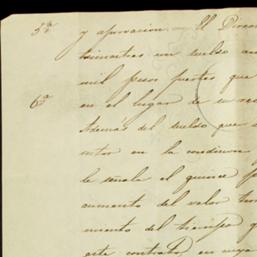 5ª y aprovacion. El Direc
trimestres un sueldo an
mil pesos fuertes que
6ª en el lugar de su re
Además del sueldo que
en la conduc
le señala el quince p
aumento del valor
miento del tiempo q
este contrato, en